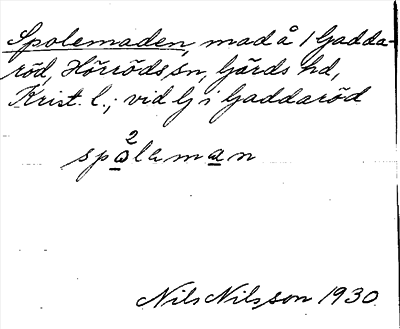 Spolemaden, mad å 1 Gadda-
röd, Hörröds sn, Gärds hd,
Krist. l.; vid lj i Gaddaröd
spo²leman
Nils Nilsson 1930